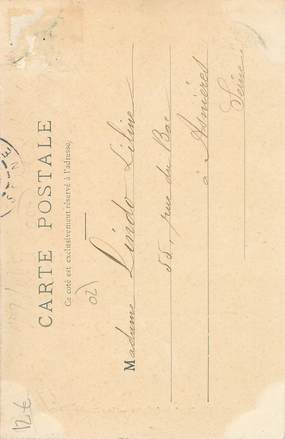 CARTE POSTALE
Ce côté est exclusivement réservé à l'adresse.
Madame Lindo Liline
55, rue du Bac
à Asnières
Seine
02
12€